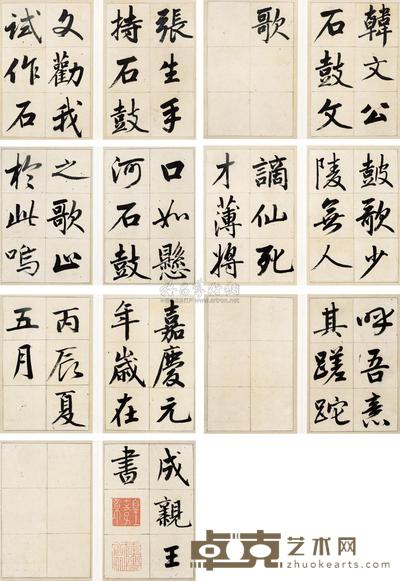 韓文公
石鼓文
歌
張生手
持石鼓
文勸我
試作石
鼓歌少
陵無人
謫仙死
才薄將
口如懸
河石鼓
之歌止
於此嗚
呼吾意
其蹉跎
嘉慶元
年歲在
丙辰夏
五月
成親王
書
卓克艺术网
www.zhuokearts.com